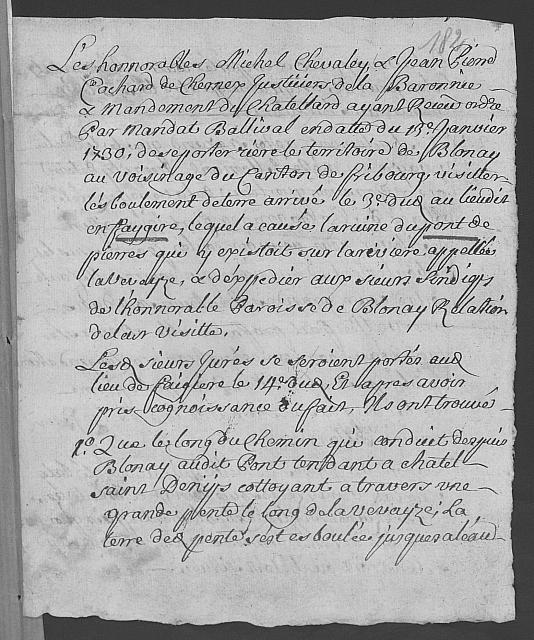 182
Les honnorables Michel Chevaley, & Jean Pierre
Cochard de Chernex Justiciers de la Baronnie
& Mandement du Chatellard ayant Reçeu ordre
Par Mandat Ballival en datte du 13e Janvier
1730, de se porter riére le territoire de Blonay
au voisinage du Canton de fribourg, visitter
l'esboulement de terre arrivé le 3e dud au lieudit
en faygire, lequel a causé la ruine du pont de
pierres qui y existoit sur la riviére appellée
la Vevayze, & d'expedier aux sieurs Sindiqs
de l'honnorable Paroisse de Blonay Relation
de leur visitte.
Lesd sieurs Jurés se seroient portés aud
lieu de faigiere le 14e dud, Et apres avoir
pris cognoissance du fait, Ils ont trouvé
1o Que le long du Chemin qui conduit despuis
Blonay audit Pont tendant a Chatel
saint Denijs cottoyant a travers une
grande pente le long de la Vevayze; La
terre de d pente s'est esboulée jusques a l'eau